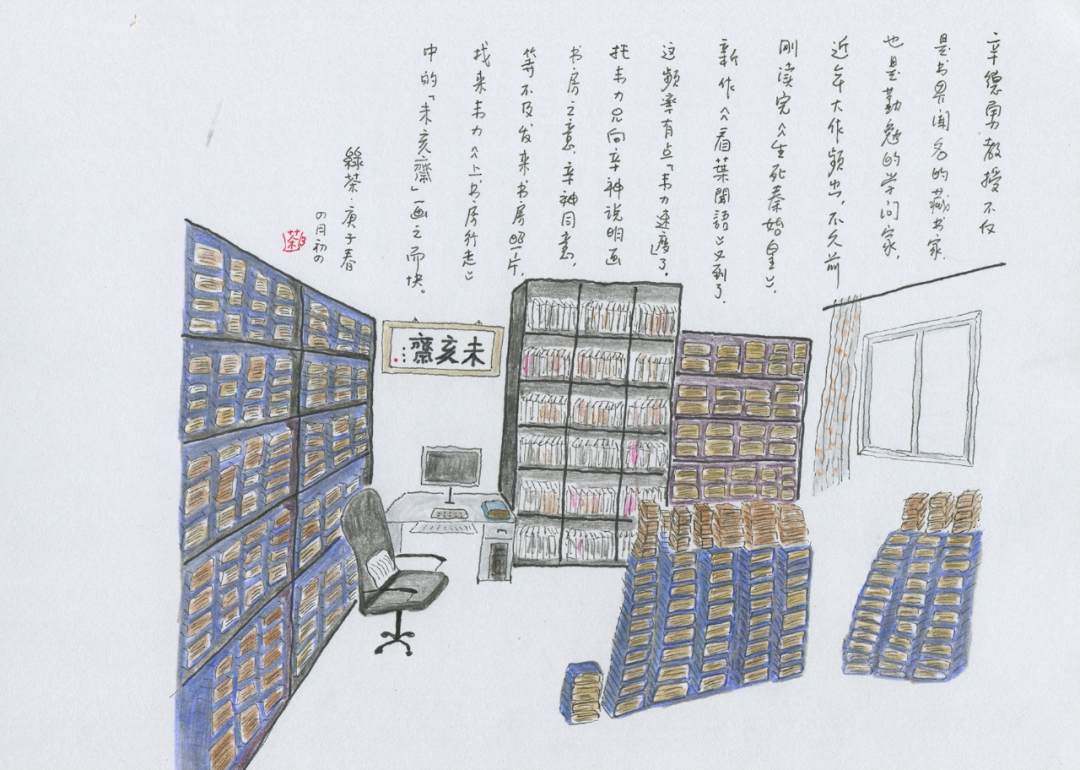 辛德勇教授不仅
是书界闻名的藏书家，
也是勤勉的学问家，
近年大作频出，不久前
刚读完《生死秦始皇》，
新作《看葉閒語》又到了，
这频率有点「韦力速度」了，
托韦力兄向辛神说明画
书房之意，辛神同意，
等不及发来书房照片，
找来韦力《上书房行走》
中的「未亥齋」画之而快。
綠茶·庚子春
の月初の
茶
未亥齋